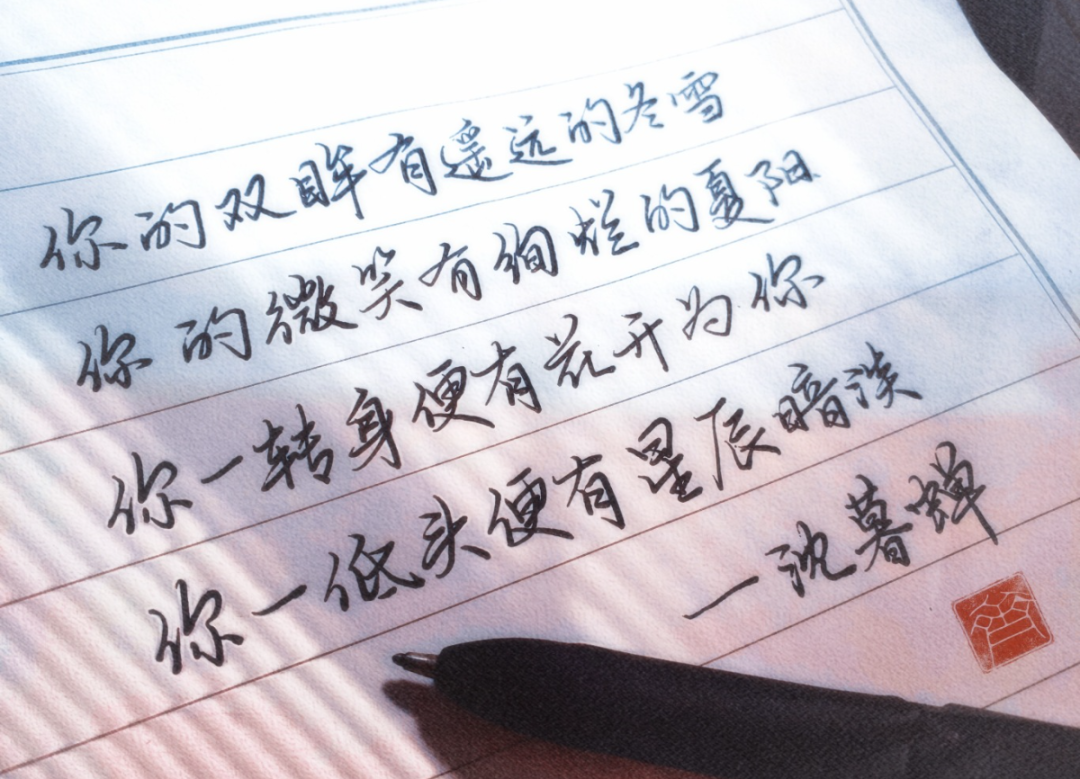 你的双眸有遥远的冬雪
你的微笑有绚烂的夏阳
你一转身便有花开为你
你一低头便有星辰暗淡
—沈暮蝉